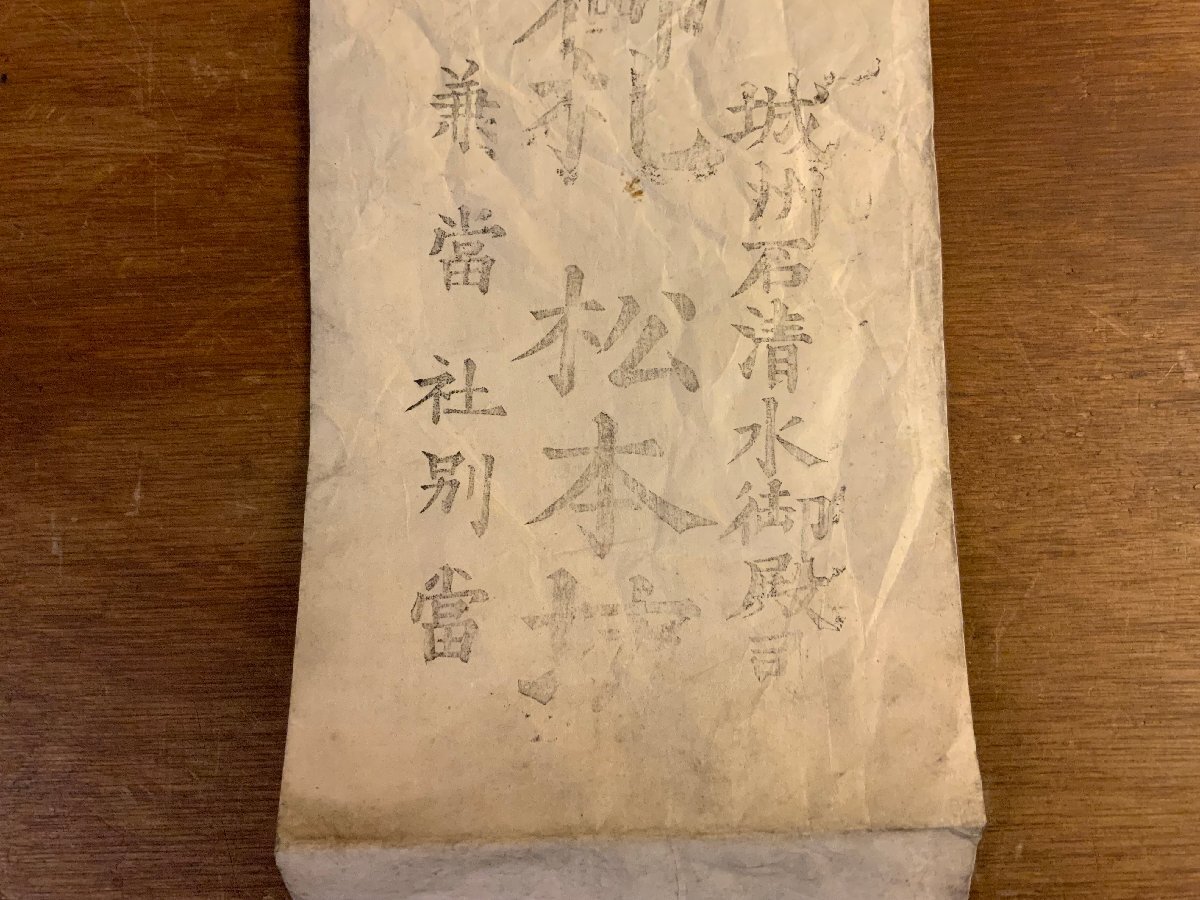 城州石清水御殿司
御札 松本坊
兼當社別當